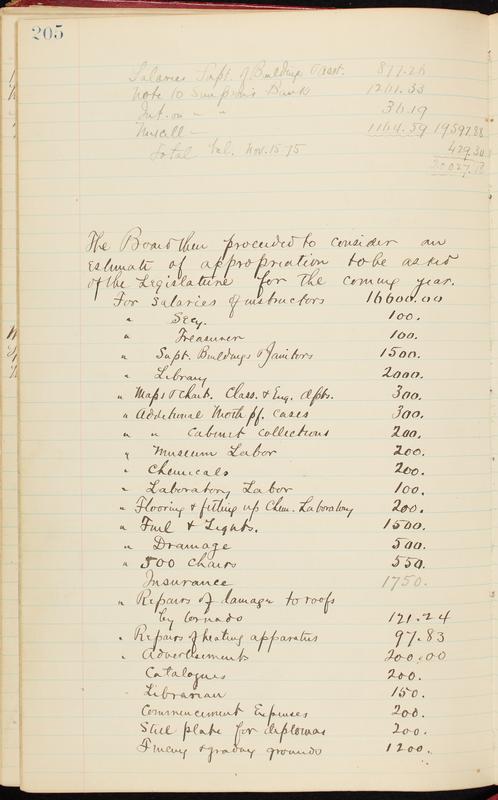 205
Salaries Supt. of Buildings & asst. 877.26
Note to Simpson's Bank 1261.33
Int. on " " 36.19
Miscell — 1164.59 19597.88
Total Bal. Nov. 15-75 429.30
20027.18
The Board then proceeded to consider an
estimate of appropriation to be asked
of the Legislature for the coming year.
For salaries of instructors 16600.00
" Secy. 100.
" Treasurer 100.
" Supt. Buildings & Janitors 1500.
" Library 2000.
" Maps & Charts. Class. & Eng. dpts. 300.
" Additional North pf. cases 300.
" " Cabinet collections 200.
" Museum Labor 200.
" Chemicals 200.
" Laboratory Labor 100.
" Flooring & fitting up Chem. Laboratory 200.
" Fuel & Lights. 1500.
" Drainage 500.
" 500 chairs 550.
Insurance 1750.
" Repairs of damages to roofs
by tornado 121.24
" Repairs of heating apparatus 97.83
" Advertisements 200.00
Catalogues 200.
Librarian 150.
Commencement Expenses 200.
Steel plate for diplomas 200.
Fencing & grading grounds 1200.